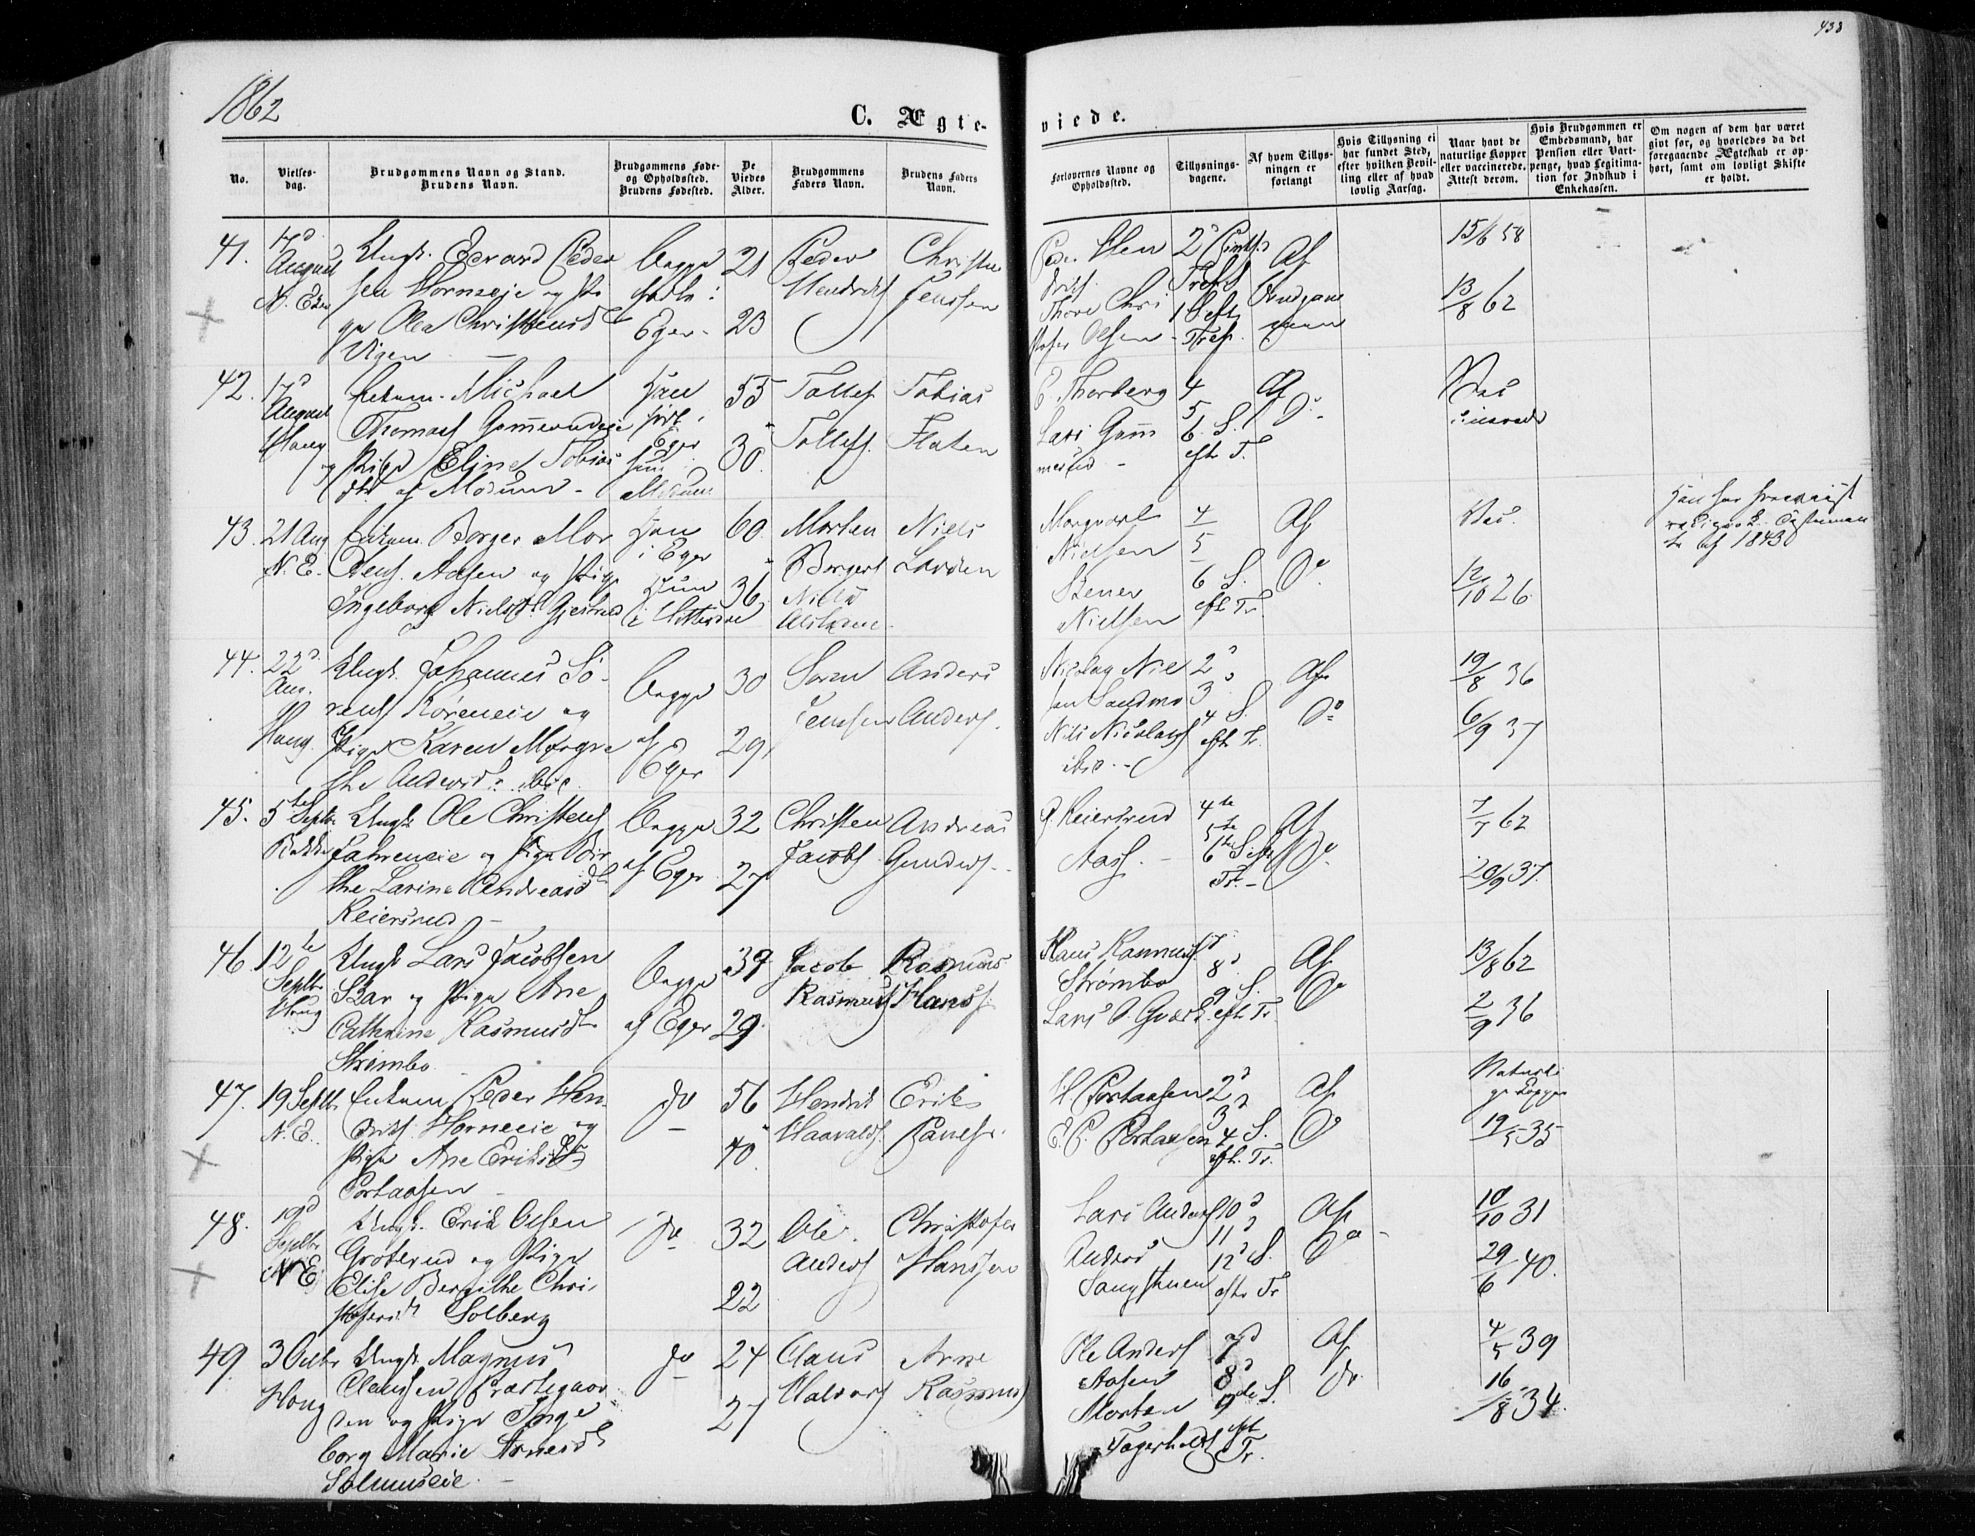 1862
438
C. Ægte-
viede.
No.
Vielses-
dag.
Brudgommens Navn og Stand.
Brudens Navn.
Brudgommens Føde-
og Opholdssted.
Brudens Fødested.
De
Viedes
Alder.
Brudgommens
Faders Navn.
Brudens Faders
Navn.
Forlovernes Navne og
Opholdssted.
Tillysnings-
dagene.
Af hvem Tillys-
ningen er
forlangt
Hvis Tillysning ei
har fundet Sted,
efter hvilken Bevil-
ling eller af hvad
lovlig Aarsag.
Naar havt de
naturlige Kopper
eller vaccinerede.
Attest derom.
Hvis Brudgommen er
Embedsmand, har
Pension eller Vart-
penge, hvad Legitima-
tion for Indskud i
Enkekassen.
Om nogen af dem har været
givt før, og hvorledes da det
foregaaende Ægteskab er op-
hørt, samt om lovligt Skifte
er holdt.
41.
17d
August
N. Eger
Ungk. Edvard Peder
sen Horneeie og Pi
ge Olea Christensdr
Vigen
Begge
fødte i
Eger
21
23
Peder
Hendriks
Christen
Jenssen
Peder Hen
driks.
Thore Chri
stofer Olsen
Af
Brudgom
men
15/6 58
13/8 62
42.
17d
August
Haug
Enkem. Michael
Thomas Gommerudeie
og Pige Eline Tobias
dtr af Modum
Han
født i
Eger
hun
Modum
55
30
Tollef
Tollefs.
Tobias
Flaten
E. Thorberg
Lars Gom
merud
4
5
6 S.
efter Tr.
Af
Do
43.
21 Aug
N. E.
Enkem. Borger Mor
tens. Aasen og Pige
Ingeborg Nielsdr. Gjestrud
Han
i Eger
Hun
60
36
Morten
Borgers
Niels
Niels
Nielsen
Stener
Nielsen
4
5
6 S.
eft. Tr.
Af
Do
Vac.
12/10 26
44.
22d
Aug.
Haug.
Ungk. Johannes Sø-
rens Køreneie og
Pige Karen Margre
the Andersd. ibid.
Begge
af
Eger
30
29
Søren
Jenssen
Anders
Anders.
Nicolay Nie
sen Sandmo
Niels Nicolays
ibid.
2d
3
4 S.
eft. Tr.
Af
Do
19/8 36
6/9 37
45.
5te Septbr
Bakke
Ungk. Ole Christens
og Pige Bir
the Larine Andreasdr
Keiersrud
Begge
af Eger
32
27
Christen
Jacobs.
Andreas
Gunders.
G. Keiersrud
Aas.
4te
5te
6te S. efter
Tr.
Af
Do
7/7 62
20/9 37.
46.
12te
Septbr
Haug
Ungk. Lars Jacobsen
Star og Pige Ane
Cathrine Rasmusdr
Strømbo
Begge
af Eger
37
29
Jacob
Rasmus
Rasmus
Hans.
Hans Rasmuss.
Strømbo
7
8d
9 S.
eft. Tr.
Af
Do
13/8 62
2/9 36
47.
19 Septbr
N. E.
Enkem Peder Hen
driks. Horneeie og
Pige Ane Eriksdr
Portaasen
do
56
40
Hendrik
Haavalds.
Erik
H. Portaasen
E. P. Portaasen
2d
3d
4 S.
eft. Tr.
Af
Do
Naturli
ge Kopper
19/5 35
48.
19d
Septbr
N E
Ungk. Erik Olsen
Grøterud og Pige
Elise Bergithe Chri
stofersdr Solberg
do
32
22
Ole
Anders
Christofer
Hanssen
Lars Anders
Anders
10d
11d
12d S.
efter Tr.
Af
Do
10/10 31
29/6 40.
49.
3 Octbr
Haug
Ungk. Magnus
Claussen Præstegaar
den og Pige Inge
borg Marie Arnesdr
do
24
27
Claus
Halvors
Arne
Rasmus
Ole Anders
Aasen
Morten
Fagerholdt
7d
8d
9de S.
eft.
Tr.
Af
Do
4/5 39
16/8 34